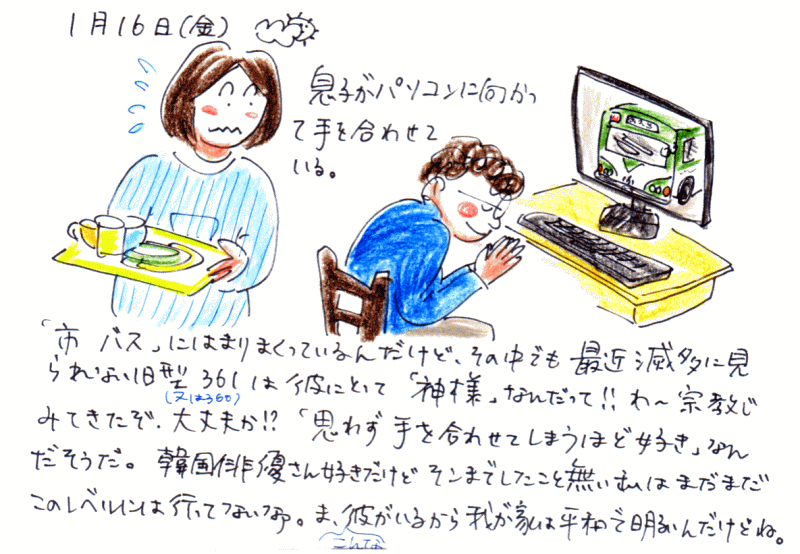 1月16日(金)
息子がパソコンに向かっ
て手を合わせて
いる。
「市バス」にはまりまくっているんだけど、その中でも最近滅多に見
られない旧型361は彼にとって「神様」なんだって!!わ〜宗教じ
(又は360)
みてきたぞ、大丈夫か!?「思わず手を合わせてしまうほど好き」なん
だそうだ。韓国俳優さん好きだけどそこまでしたこと無い私はまだまだ
このレベルには行ってないなァ。ま、彼がいるから我が家は平和で明るいんだけどね。
こんな